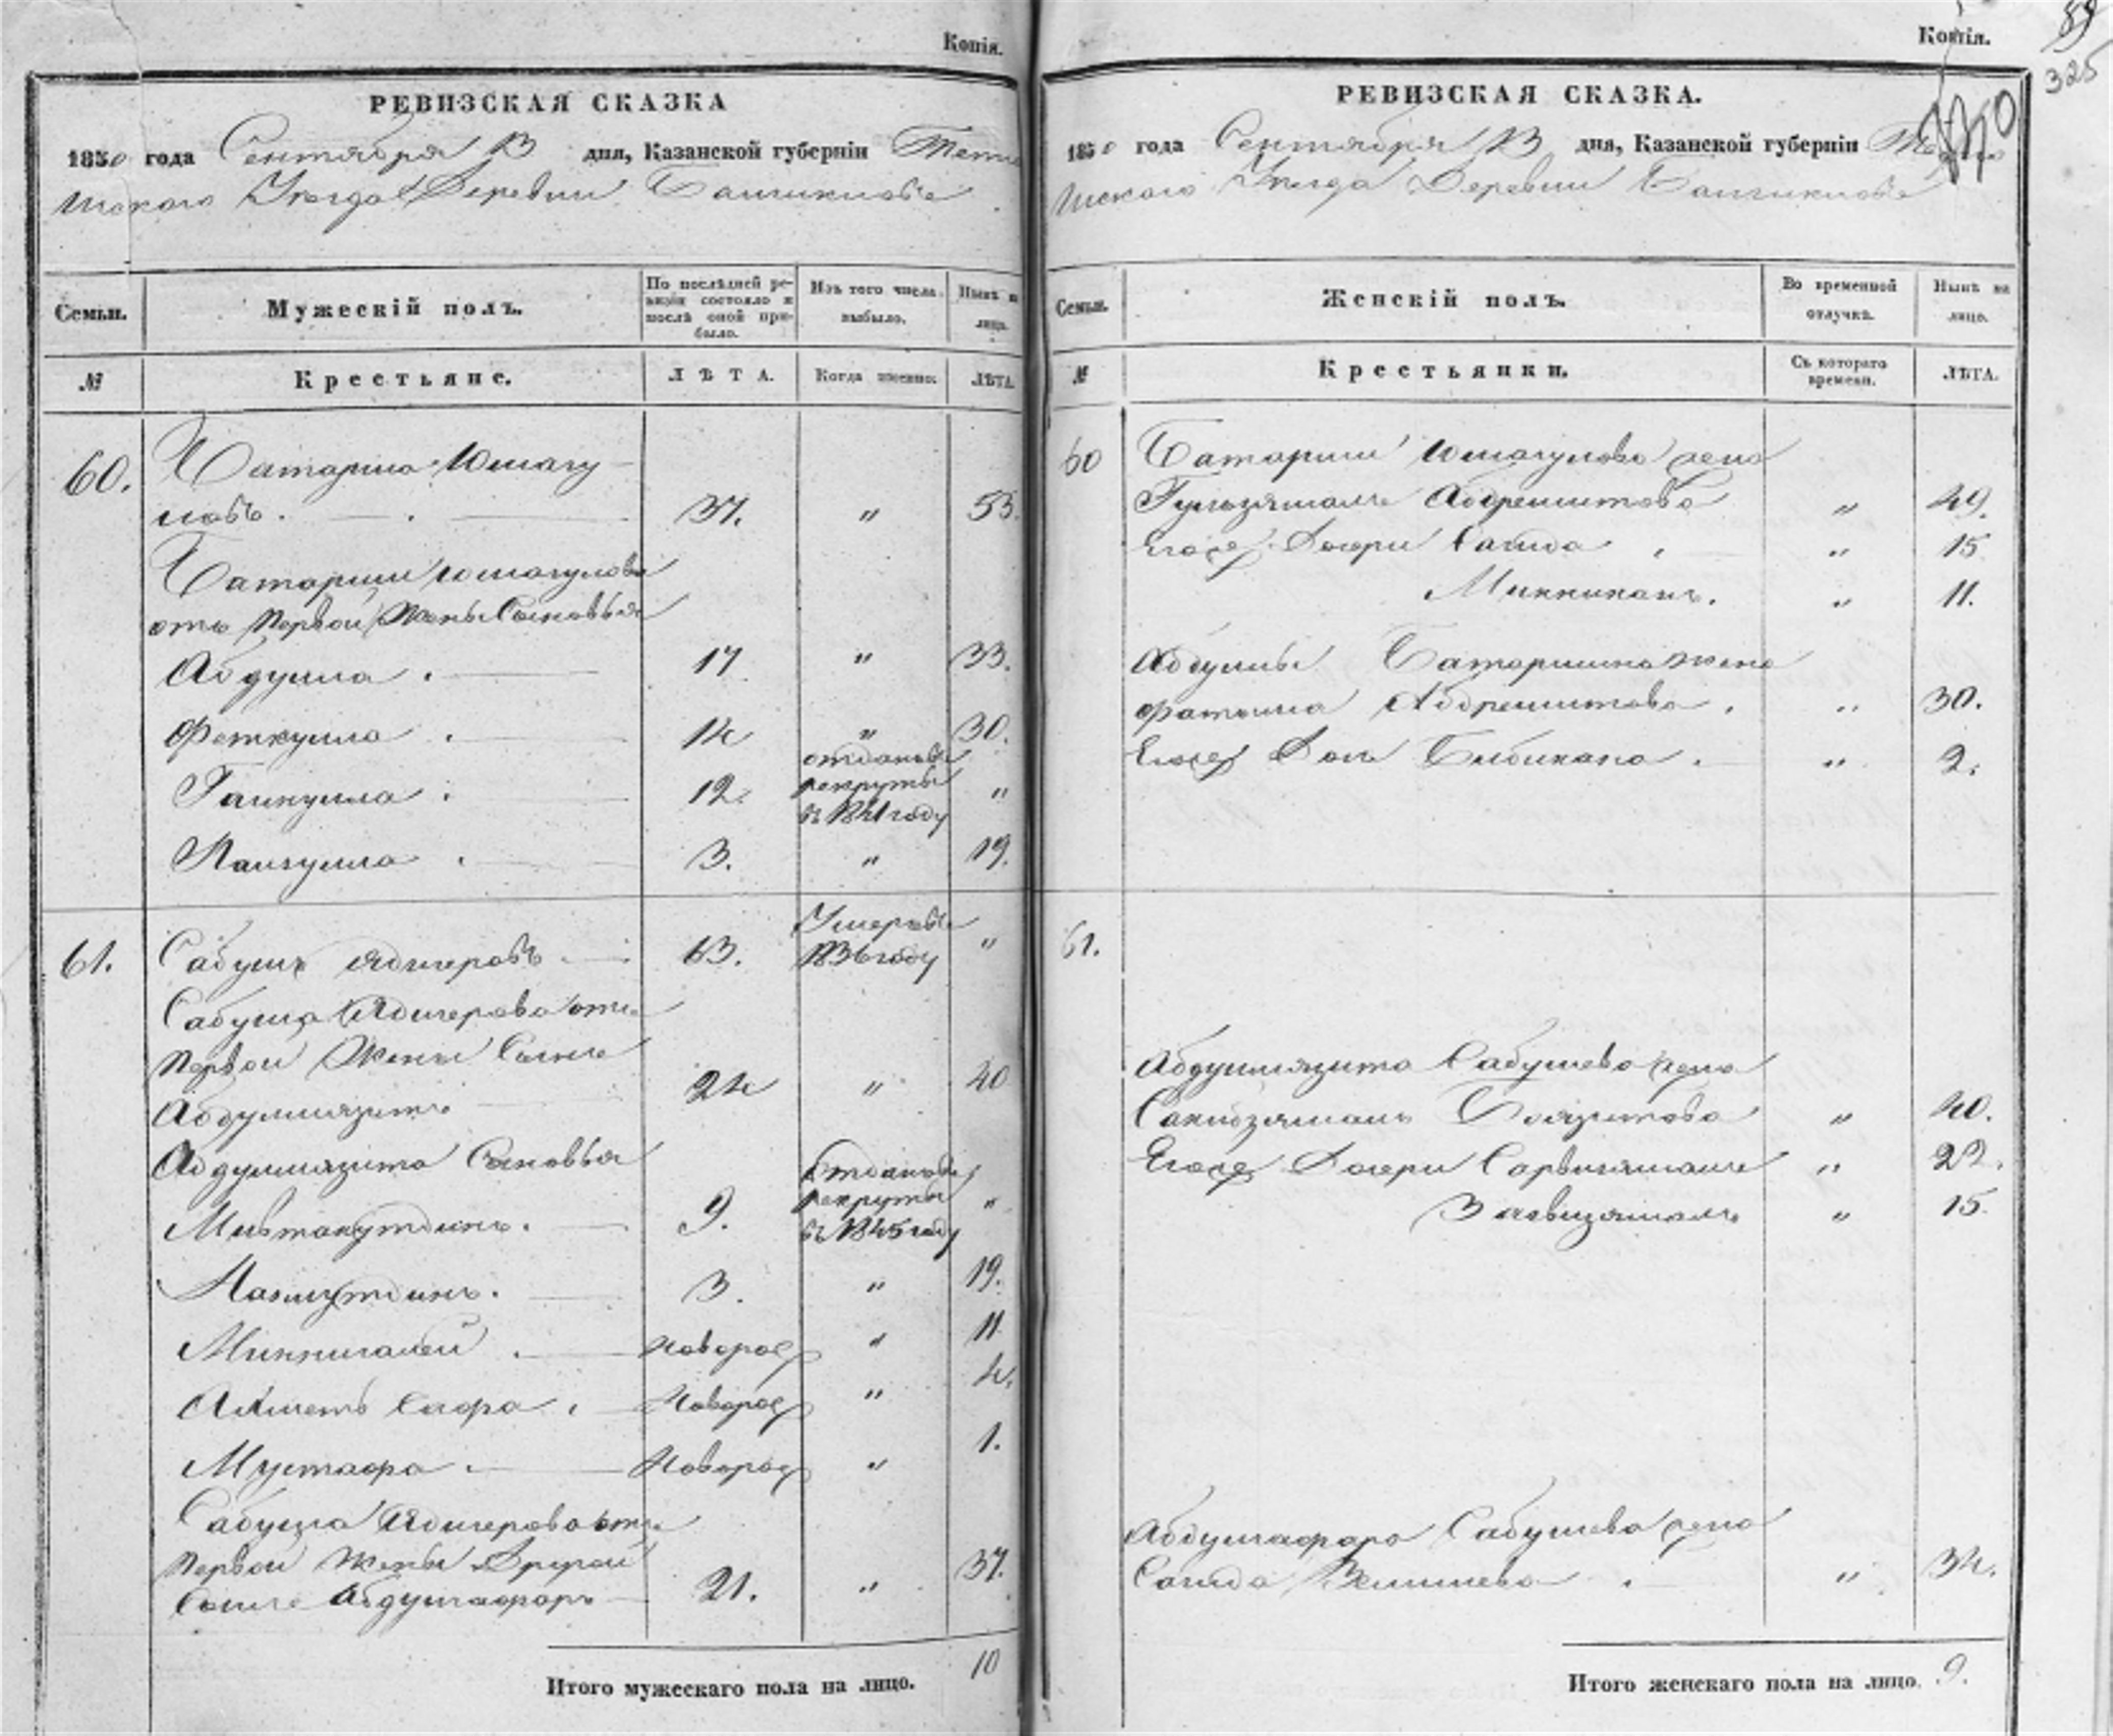 Копія.
РЕВИЗСКАЯ СКАЗКА
1850 года Сентября 13 дня, Казанской губерніи Тетю
шскаго Уезда Деревни
Семьи.
Мужескій полъ.
По послѣдней ре-
визіи состояло и
послѣ оной при-
было.
Изъ того числа
выбыло.
Нынѣ на
лицо.
№
Крестьяне.
ЛѢТА.
Когда именно.
ЛѢТА.
60.
Батарша Юмагу
ловъ. 37. " 53.
Батарши Юмагулова
отъ первой жены сыновья
Абдулла. 17 " 33.
Феткулла. 14 " 30.
Гайнулла. 12. отданъ въ
рекруты "
въ 1841 году
3. " 19.
61.
Сабушъ Ядигеровъ. 63. Умеръ въ
1836 году "
Сабуша Ядигерова отъ
первой жены сынъ
24 " 40
сыновья
9. Отданъ въ
рекруты "
въ 1845 году
3. " 19.
Миннигалей. новорож " 11
Ахметь Сафа. новорож " 4.
Мустафа. новорож " 1.
Сабуша Ядигерова отъ
первой жены другой
сынъ Абдулгафаръ 21. " 37.
Итого мужескаго пола на лицо. 10
Копія.
325
РЕВИЗСКАЯ СКАЗКА.
1850 года Сентября 13 дня, Казанской губерніи
шскаго Уезда Деревни
Семьи.
Женскій полъ.
Во временной
отлучкѣ.
Нынѣ на
лицо.
№
Крестьянки.
Съ котораго
времени.
ЛѢТА.
60
Батарши Юмагулова жена
Гульзямалъ Абдрешитова " 49.
Егоже дочери Сагида " 15
11.
Абдуллы Батаршина жена
Фатыма Абдрешитова. " 30.
Егоже дочь Бибикана. " 2.
61.
Сабушева жена
40.
Егоже дочери " 22.
" 15
Абдулгафара Сабушева жена
Сагида " 34.
Итого женскаго пола на лицо 9.